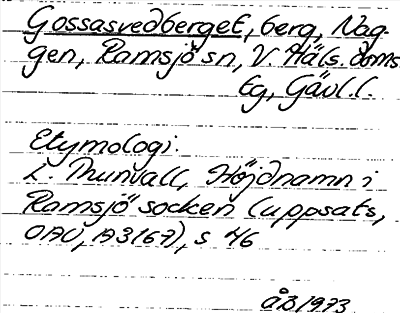 Gossasvedberget, berg, Nag-
gen, Ramsjö sn, V. Häls. doms
tg, Gävl. l.
Etymologi.
L. Thunvall, Höjdnamn i
Ramsjö socken (uppsats,
OAU, 1967), s 46
ÅB 1973